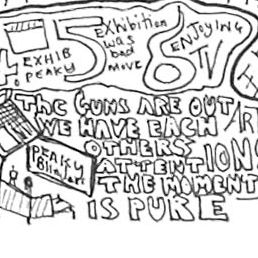 4.
EXHIB
PEAKY
5
EXHIBITION
WAS
BAD
MOVE
6
ENJOYING
TV
THE GUNS ARE OUT
WE HAVE EACH
OTHERS
ATTENTIONS
THE MOMENT
IS PURE
PEAKY
Blinders
ART